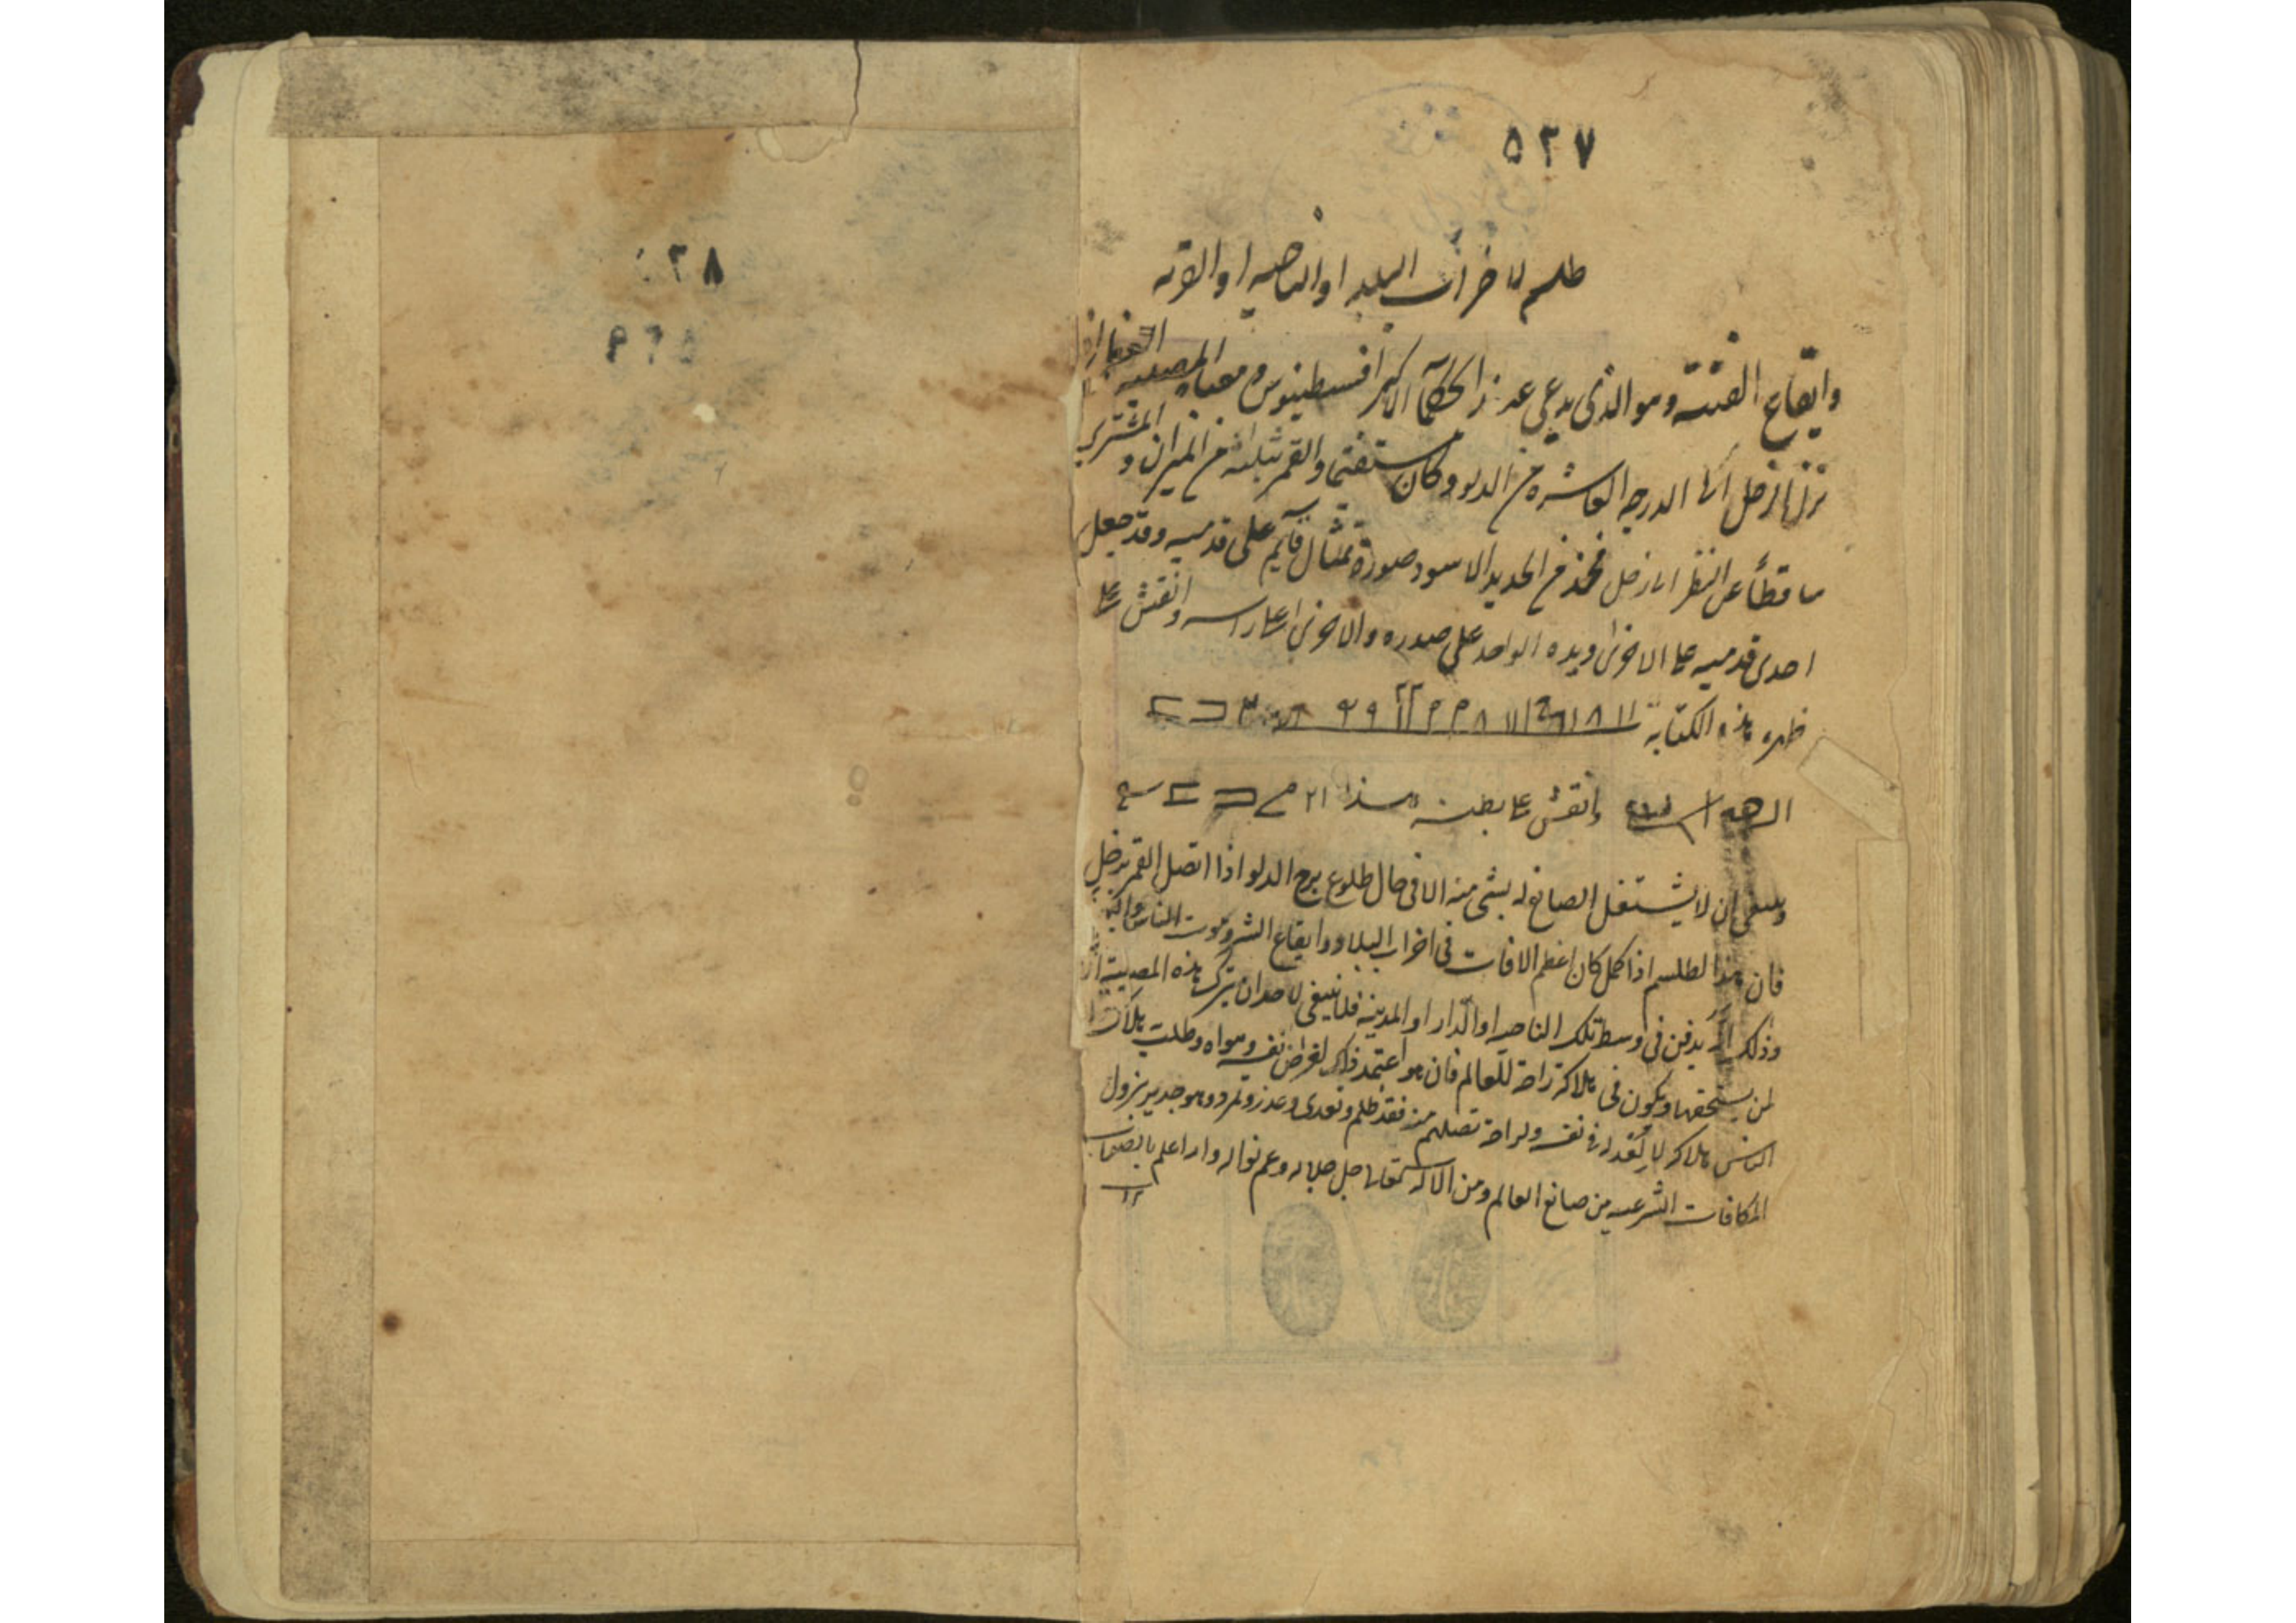 ٥٢٧
طلسم لاخراب البلد او الناحيه او القريه
وايقاع الفتنة وهو الذى يدعى عند الحكمآ الاكبر افسطينوس ومعناه المصيبه
نزل زحل الى الدرجه العاشره من الدلو وكان مستقيما والقمر تثليثه من الميزان و المشترى
ساقطاً عن النظر الى زحل فخذ من الحديد الاسود صورة تمثال قآيم على قدميه وقد جعل
احدى قدميه على الاخرى ويده الواحد على صدره والاخرى على راسه وانقش على
ظهره هذه الكتابة
وانقش على بطنه هذا
وينبغى ان لا يشتغل الصانع له بشى منه الا فى حال طلوع برج الدلو اذا اتصل القمر بزحل
فان هذا الطلسم اذا كمل كان اعظم الافات فى اخراب البلاد وايقاع الشر وموت الناس
وذلك ان يدفن فى وسط تلك الناحيه او الدار او المدينه فلا ينبغى لاحد ان يترك هذه المصيبة
لمن يستحقها ويكون فى هلاكه راحة للعالم فان هو اعتمد ذلك لغراض نفسه وهواه وطلب هلاك
الناس هلاكه لا لحقد له فى نفسه ولراحة تصلهم منه فقد ظلم وتعدى وغدر وتمرد وهو جدير بنزول
المكافات الشرعيه من صانع العالم ومن الاله تعالى جل جلاله وعم نواله والله اعلم بالصواب
٥٢٨